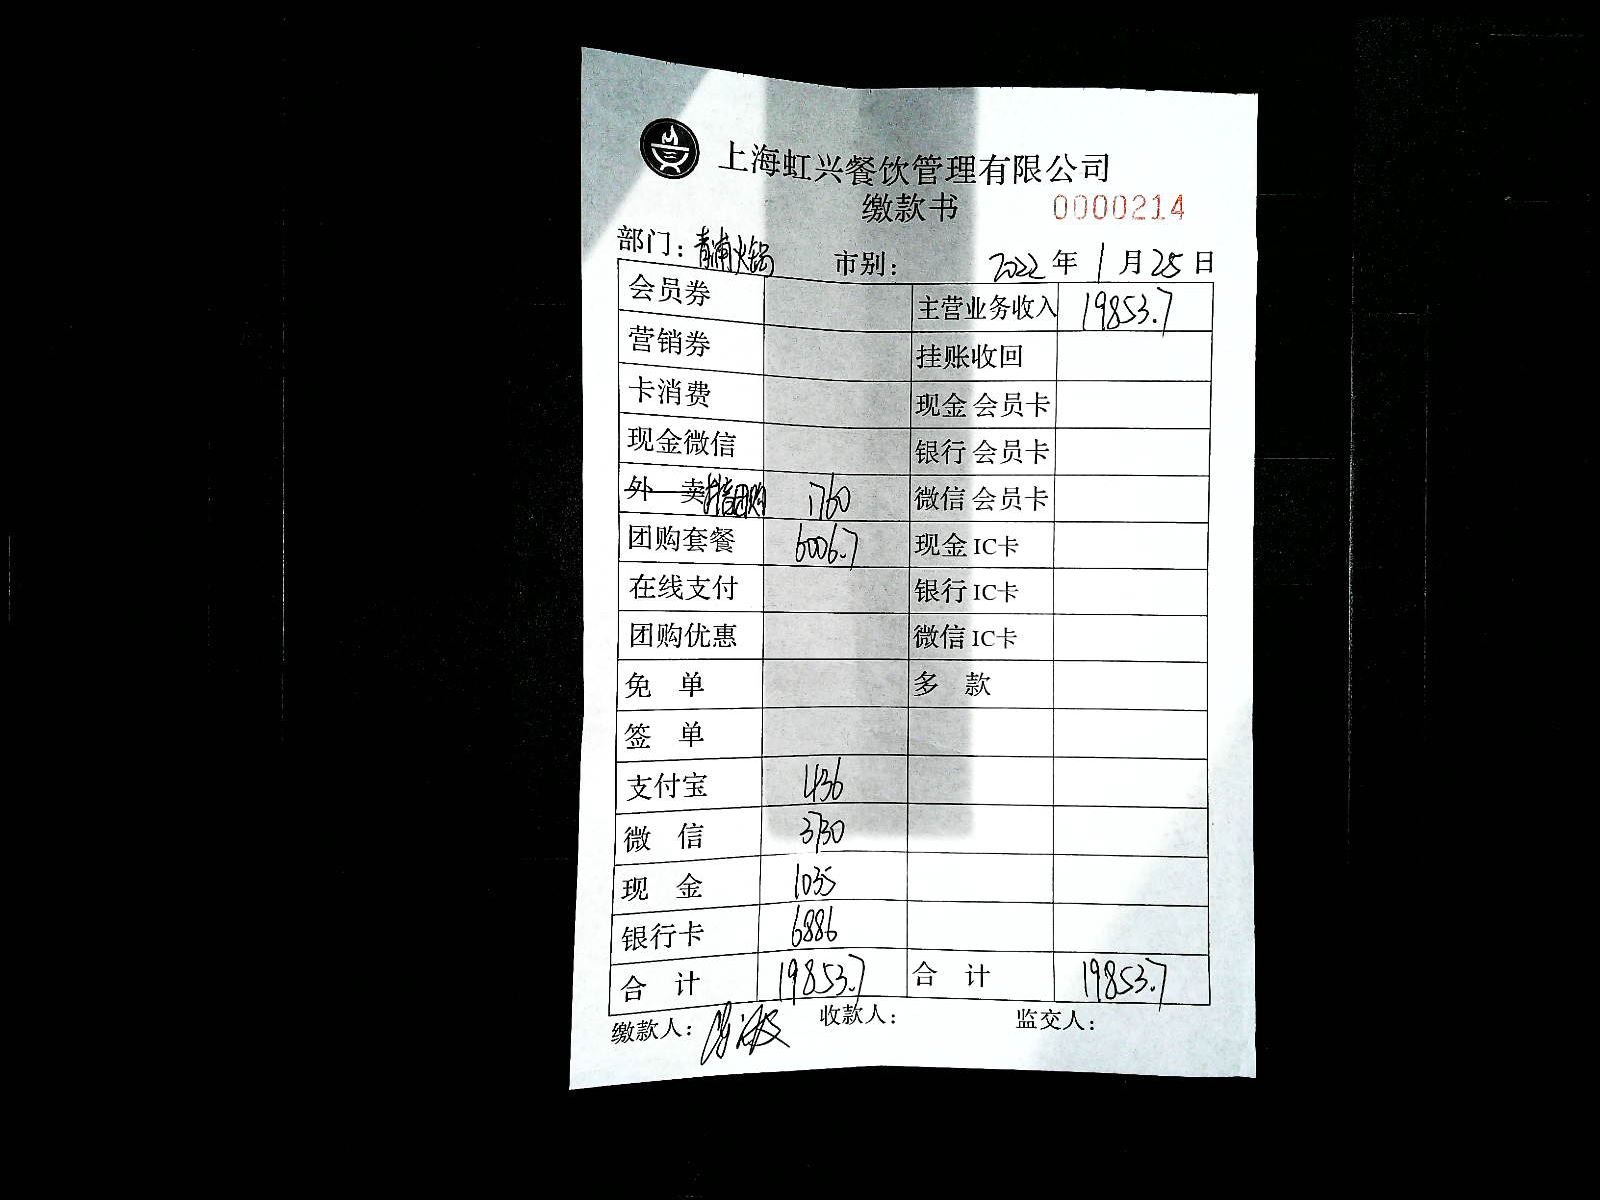 上海虹兴餐饮管理有限公司
缴款书 0000214
部门：青浦火锅 市别： 2022 年 1 月 25 日
会员券 主营业务收入 19853.7
营销券 挂账收回
卡消费 现金 会员卡
现金微信 银行 会员卡
外 卖 抖音团购 1760 微信 会员卡
团购套餐 6006.7 现金 IC卡
在线支付 银行 IC卡
团购优惠 微信 IC卡
免 单 多 款
签 单
支付宝 436
微 信 3730
现 金 1035
银行卡 6886
合 计 19853.7 合 计 19853.7
缴款人： 收款人： 监交人：